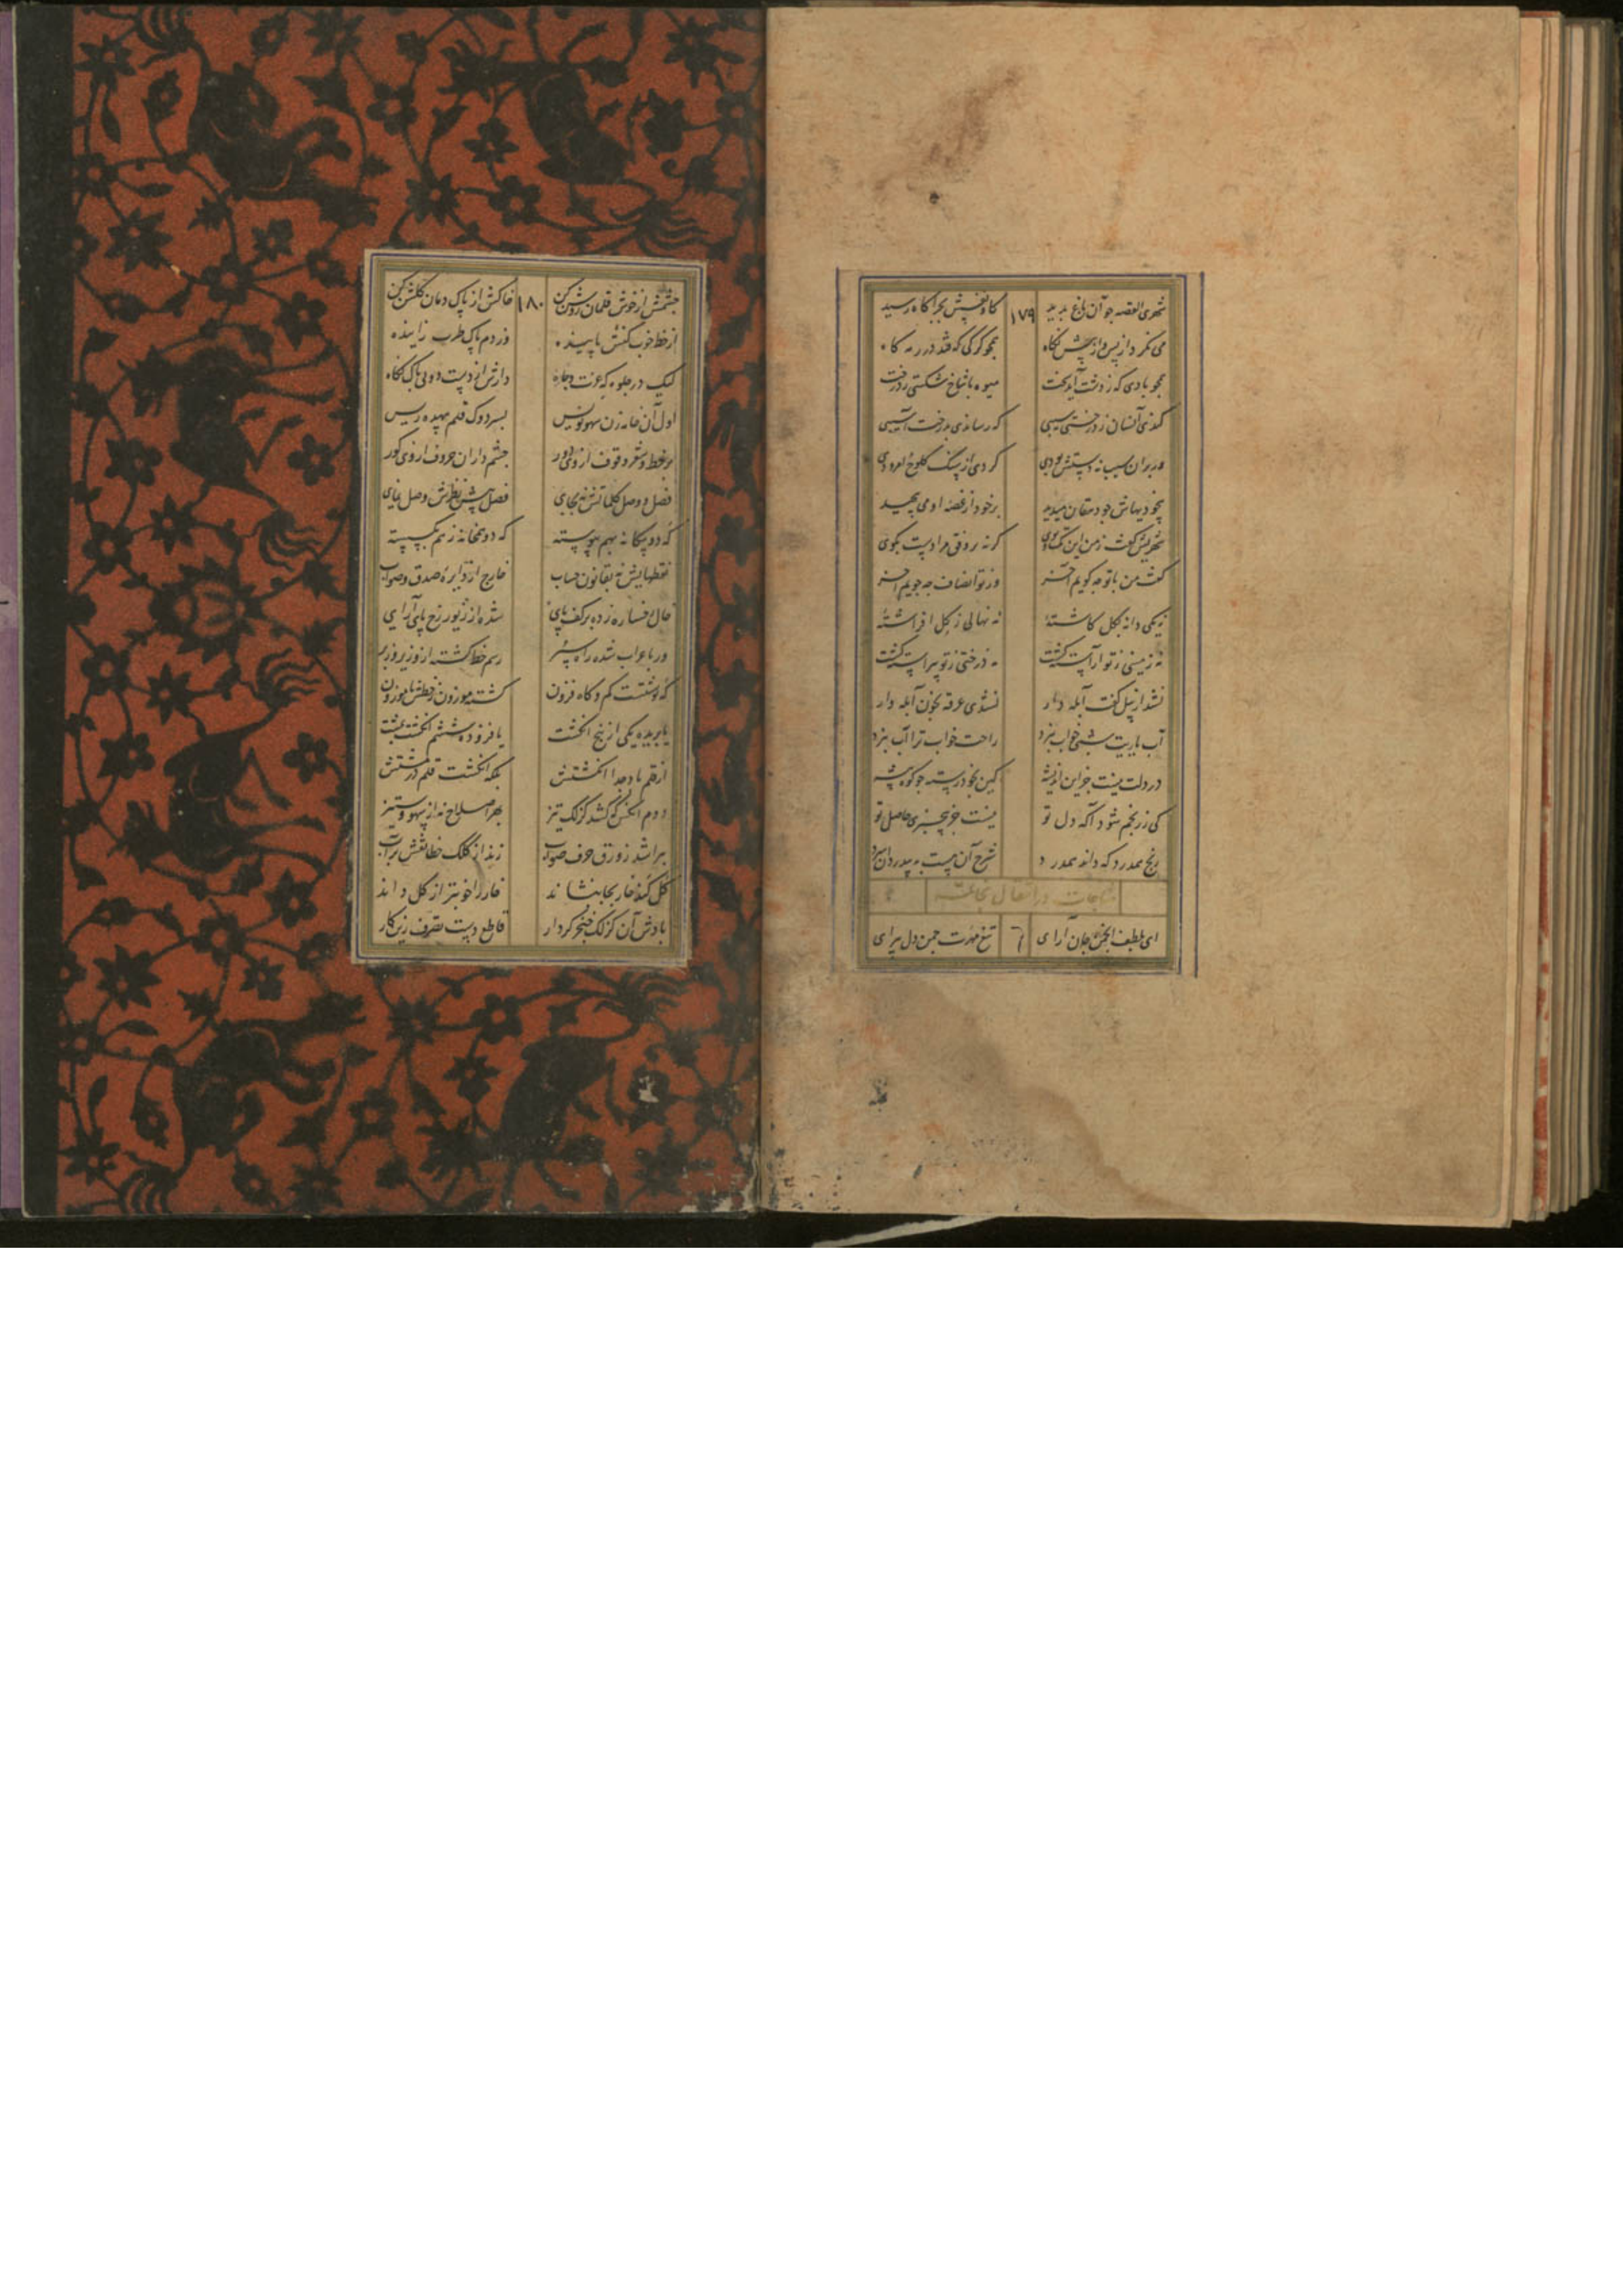 شهری القصه جو آن باغ بدید ۱۷۹ کاو نفسش بچراکاه رسید
می نکرد از پس و از پیش نکاه همجو کرکی که فتد در رمه کاه
همجو بادی که ز دشت آید سخت میوه با شاخ شکستی ز درخت
کندی آنسان ز درختی سیبی که رساندی بدرخت آسیبی
ور بران سیب نه دستش بودی کردی از سنک کلوخ امرودی
بیخودیهاش جو دهقان میدید برخود از غصه او می پیجید
شهریش کفت ز من این تک وپوی کر نه بر وفق مرادست بکوی
کفت من با تو جه کویم آخر وز تو انصاف جه جویم آخر
نه یکی دانه بکل کاشتهٔ نه نهالی ز کل افراشتهٔ
نه زمینی ز تو آراسته کشت نه درختی ز تو پیراسته کشت
نشد از بیل کفت آبله دار نشدی غرقه بخون آبله وار
آب یاریت شبی خواب نبرد راحت خواب ترا آب نبرد
در دلت نیست جز این اندیشه کین بخود رسته جو کوه و بیشه
کی ز رنجم شود آکه دل تو نیست جز بیخبری حاصل تو
رنج همدرد که داند همدرد شرح آن نیست به بیدردان درد
مناجات در انتقال بخاتمه
ای بلطف انجمن جان آرای تیغ مهرت جمن دل پیرای
جشمش از خوش قلمان روشن کن ۱۸۰ خاکش از پاک دمان کلشن کن
از خط خوب کنش پاینده وز دم پاک طرب زاینده
لیک در جلوه که عزت وجاه دارش از دست دو بی باک نکاه
اول آن خامه زن سهو نویس بسر دوک قلم بیهده ریس
بر خط و شعر وقوف از وی دور جشم داران حروف از وی کور
فصل و وصل کلماتش نه بجای فصل پیش نظرش وصل نمای
که دو بیکانه بهم پیوسته که دو همخانه ز هم بکسسته
نقطهایش نه بقانون حساب خارج از دایرهٔ صدق و صواب
خال رخساره زده بر کف پای شده از زیور رخ پای آرای
ور باعراب شده راه سپر رسم خط کشته از و زیر و زبر
که نوشتست کم و کاه فزون کشته موزون ز خطش ناموزون
یا بریده یکی از پنج انکشت یا فزوده ششم انکشت بمشت
از قلم باد جدا انکشتش بلکه انکشت قلم در مشتش
دوم آنکس که کشد کزلک تیز بهر اصلاح نه از سهو وستیز
بتراشد ز ورق حرف صواب زند از کلک خطا نقش بر آب
کل کند خار بجا بنشاند خار را خوبتر از کل داند
بادش آن کزلک خنجر کردار قاطع دست تصرف زین کار